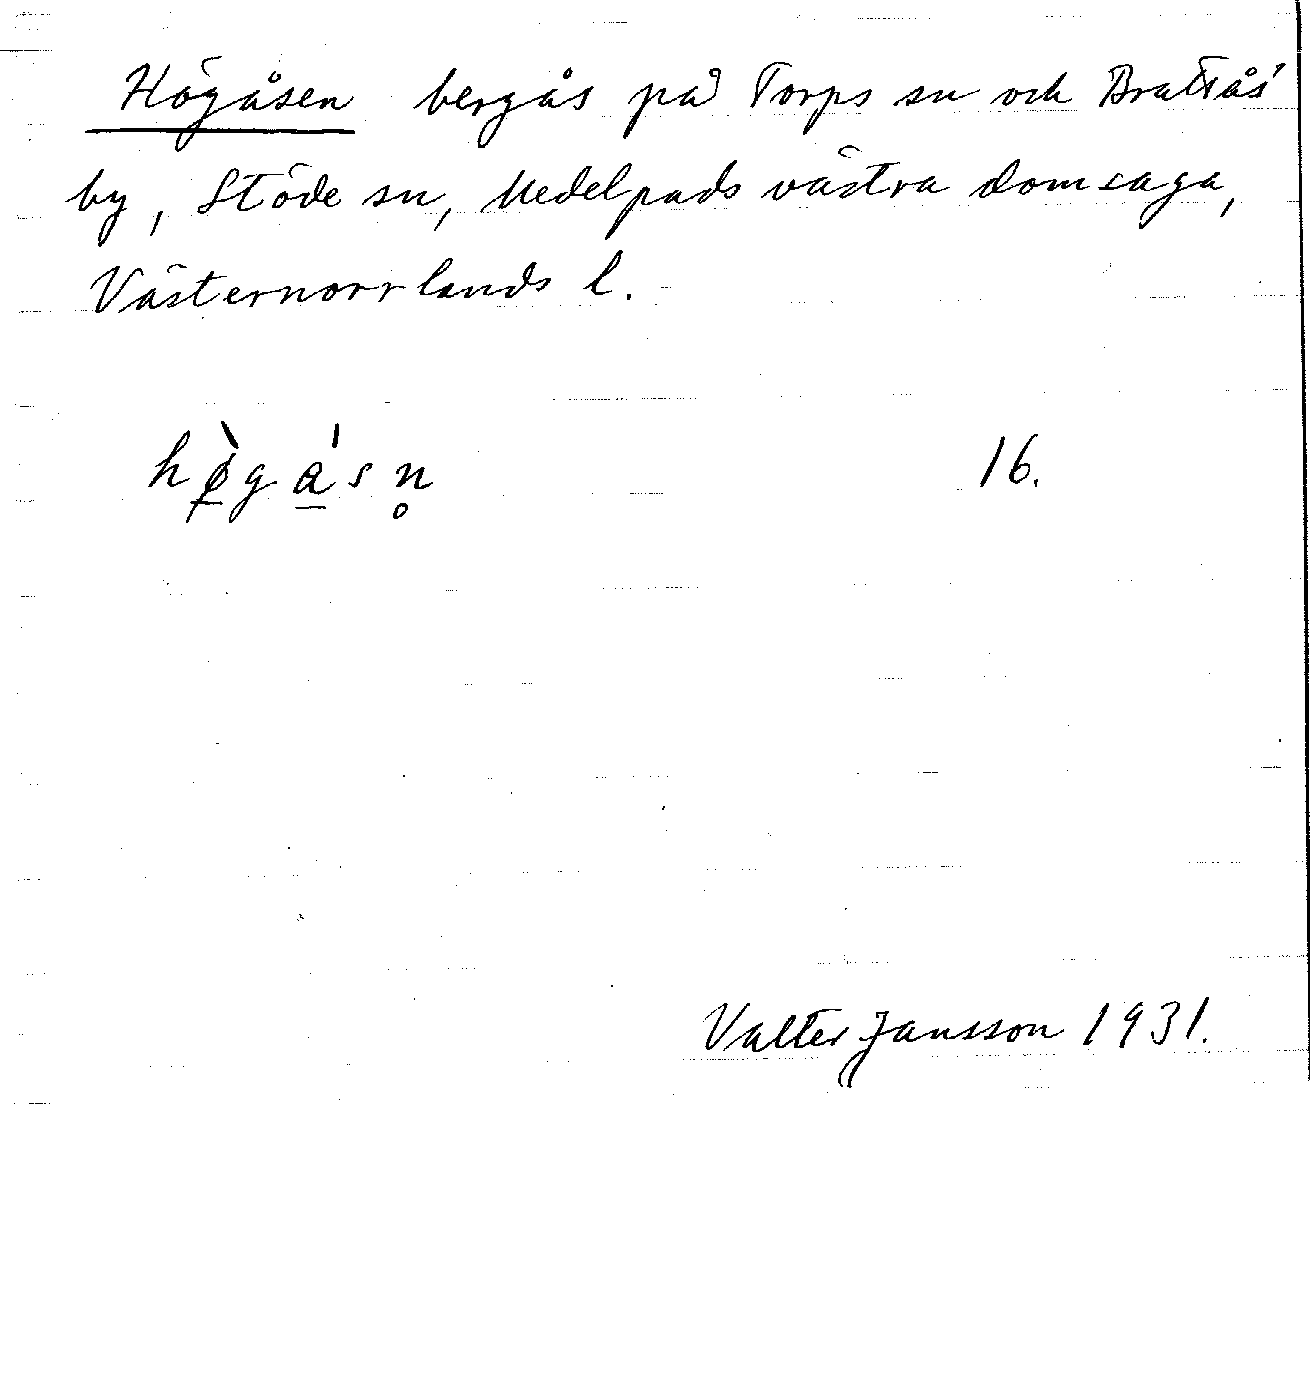 Högåsen bergås på Torps sn och Brattås'
by, Stöde sn, Medelpads västra domsaga,
Västernorrlands l.
hø̀gásn̥ 16.
Valter Jansson 1931.